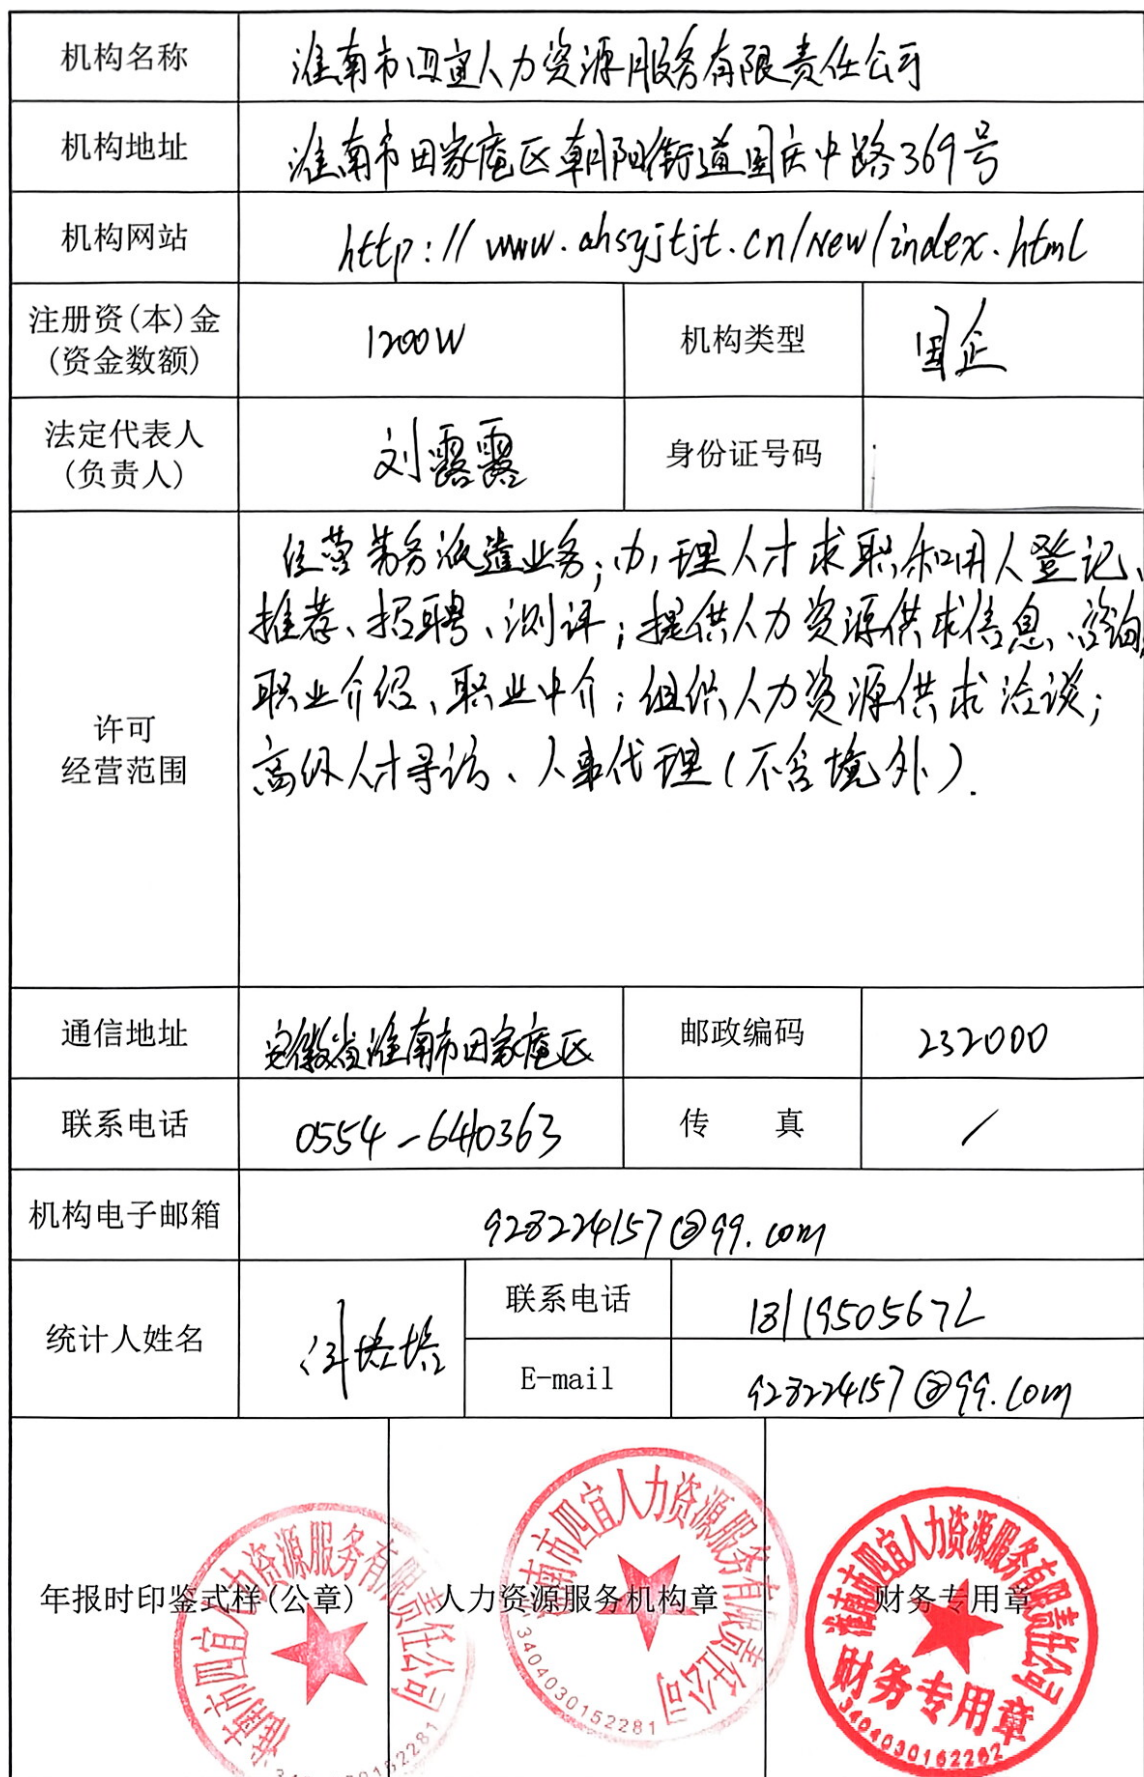 机构名称 淮南市四宜人力资源服务有限责任公司
机构地址 淮南市田家庵区朝阳街道国庆中路369号
机构网站 http://www.ahsyjtjt.cn/New/index.html
注册资(本)金
(资金数额) 1200W 机构类型 国企
法定代表人
(负责人) 刘露露 身份证号码
许可
经营范围
经营劳务派遣业务;办理人才求职和用人登记、
推荐、招聘、测评;提供人力资源供求信息、咨询,
职业介绍、职业中介;组织人力资源供求洽谈;
高级人才寻访、人事代理(不含境外).
通信地址 安徽省淮南市田家庵区 邮政编码 232000
联系电话 0554-6410363 传 真 /
机构电子邮箱 928224157@qq.com
统计人姓名 联系电话 13119505672
E-mail 928224157@qq.com
年报时印鉴式样(公章) 人力资源服务机构章 财务专用章
淮南市四宜人力资源服务有限责任公司
淮南市四宜人力资源服务有限责任公司
3404030152281
淮南市四宜人力资源服务有限责任公司
财务专用章
3404030162282